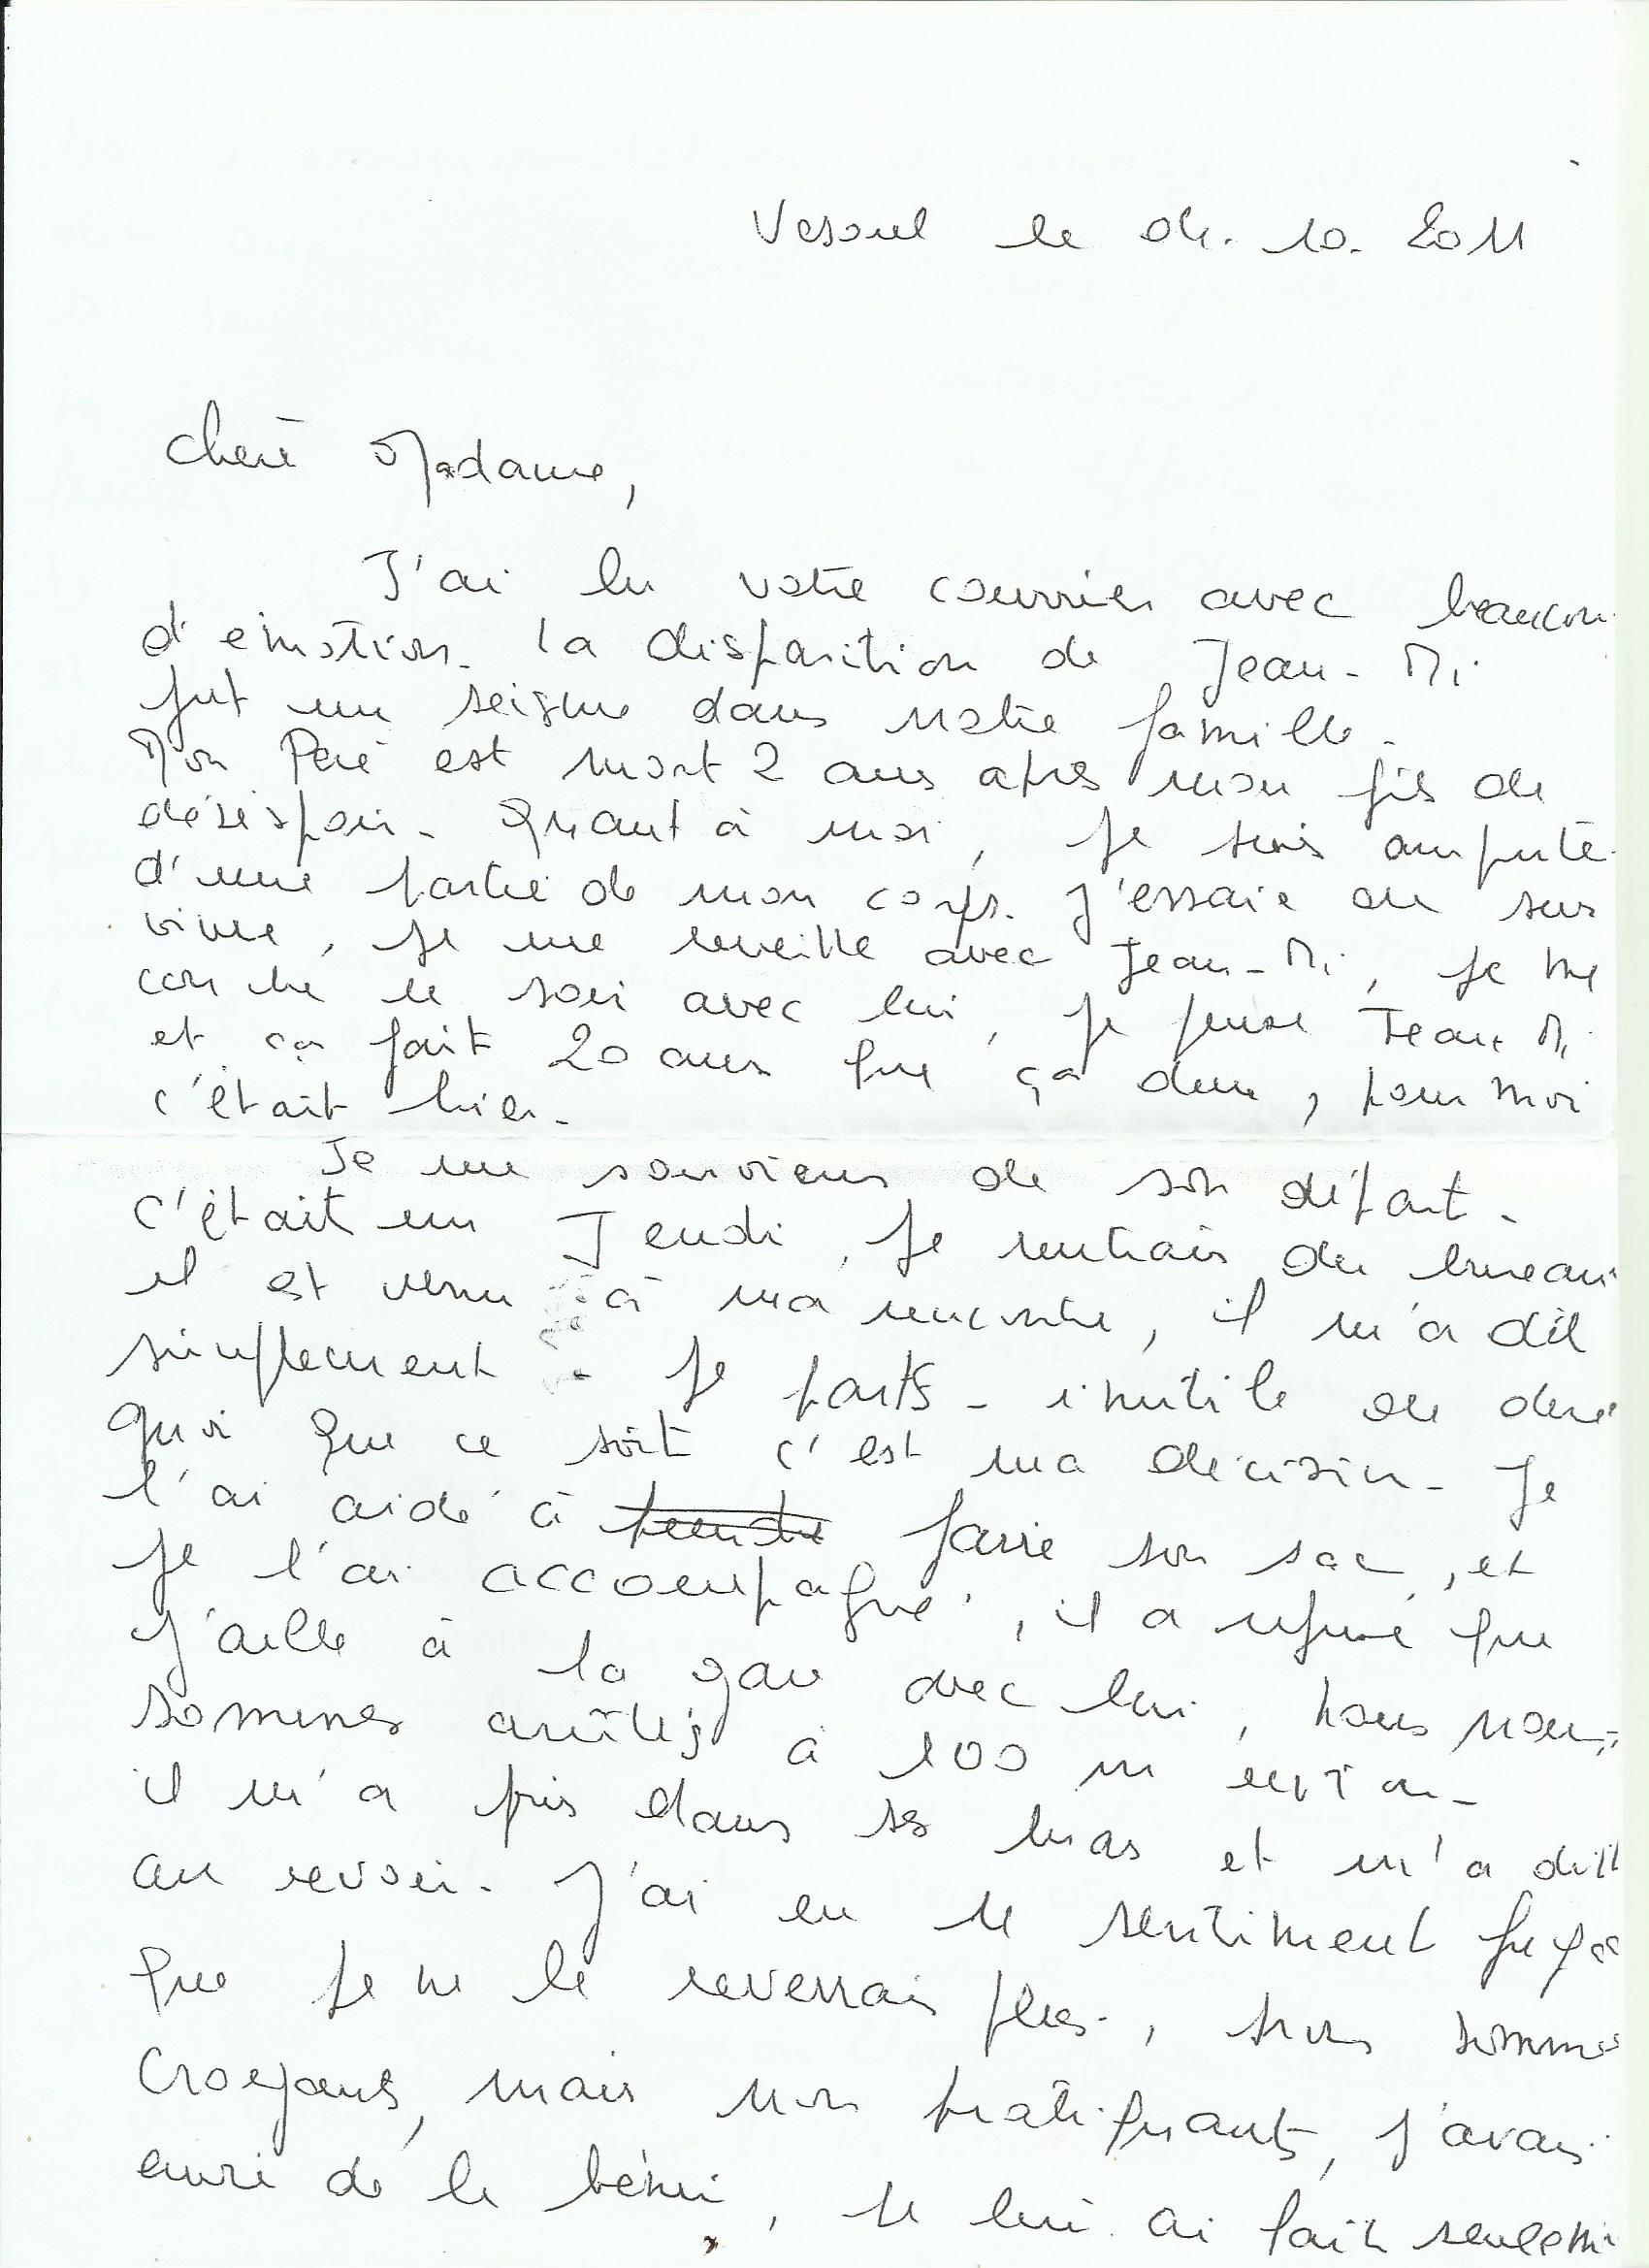 Vesoul le 04. 10. 2011
Chère Madame,
J'ai lu votre courrier avec beaucou
d'émotion. la disparition de Jean-Mi
fut un seisme dans notre famille.
Mon Père est mort 2 ans après mon fils de
désespoir. Quant à moi, je suis amputé
d'une partie de mon corps. J'essaie de sur
vivre, je me reveille avec Jean-Mi, je me
couche le soir avec lui, je pense Jean Mi
et ça fait 20 ans que ça dure, pour moi
c'était hier.
Je me souviens de son départ.
C'était un Jeudi, je rentrais du bureau
il est venu à ma rencontre, il m'a dit
simplement - je parts - inutile de dire
quoi que ce soit c'est ma décision. Je
l'ai aidé à prendre faire son sac, et
je l'ai accompagné, il a refusé que
j'aille à la gare avec lui, nous nous
sommes arrêtés à 100 m
il m'a pris dans ses bras et m'a dit
au revoir. J'ai eu le sentiment
que je ne le reverrais plus., nous somme
Croyants, mais non pratiquants, j'avais
envie de le bénir, je lui ai fait seuleme